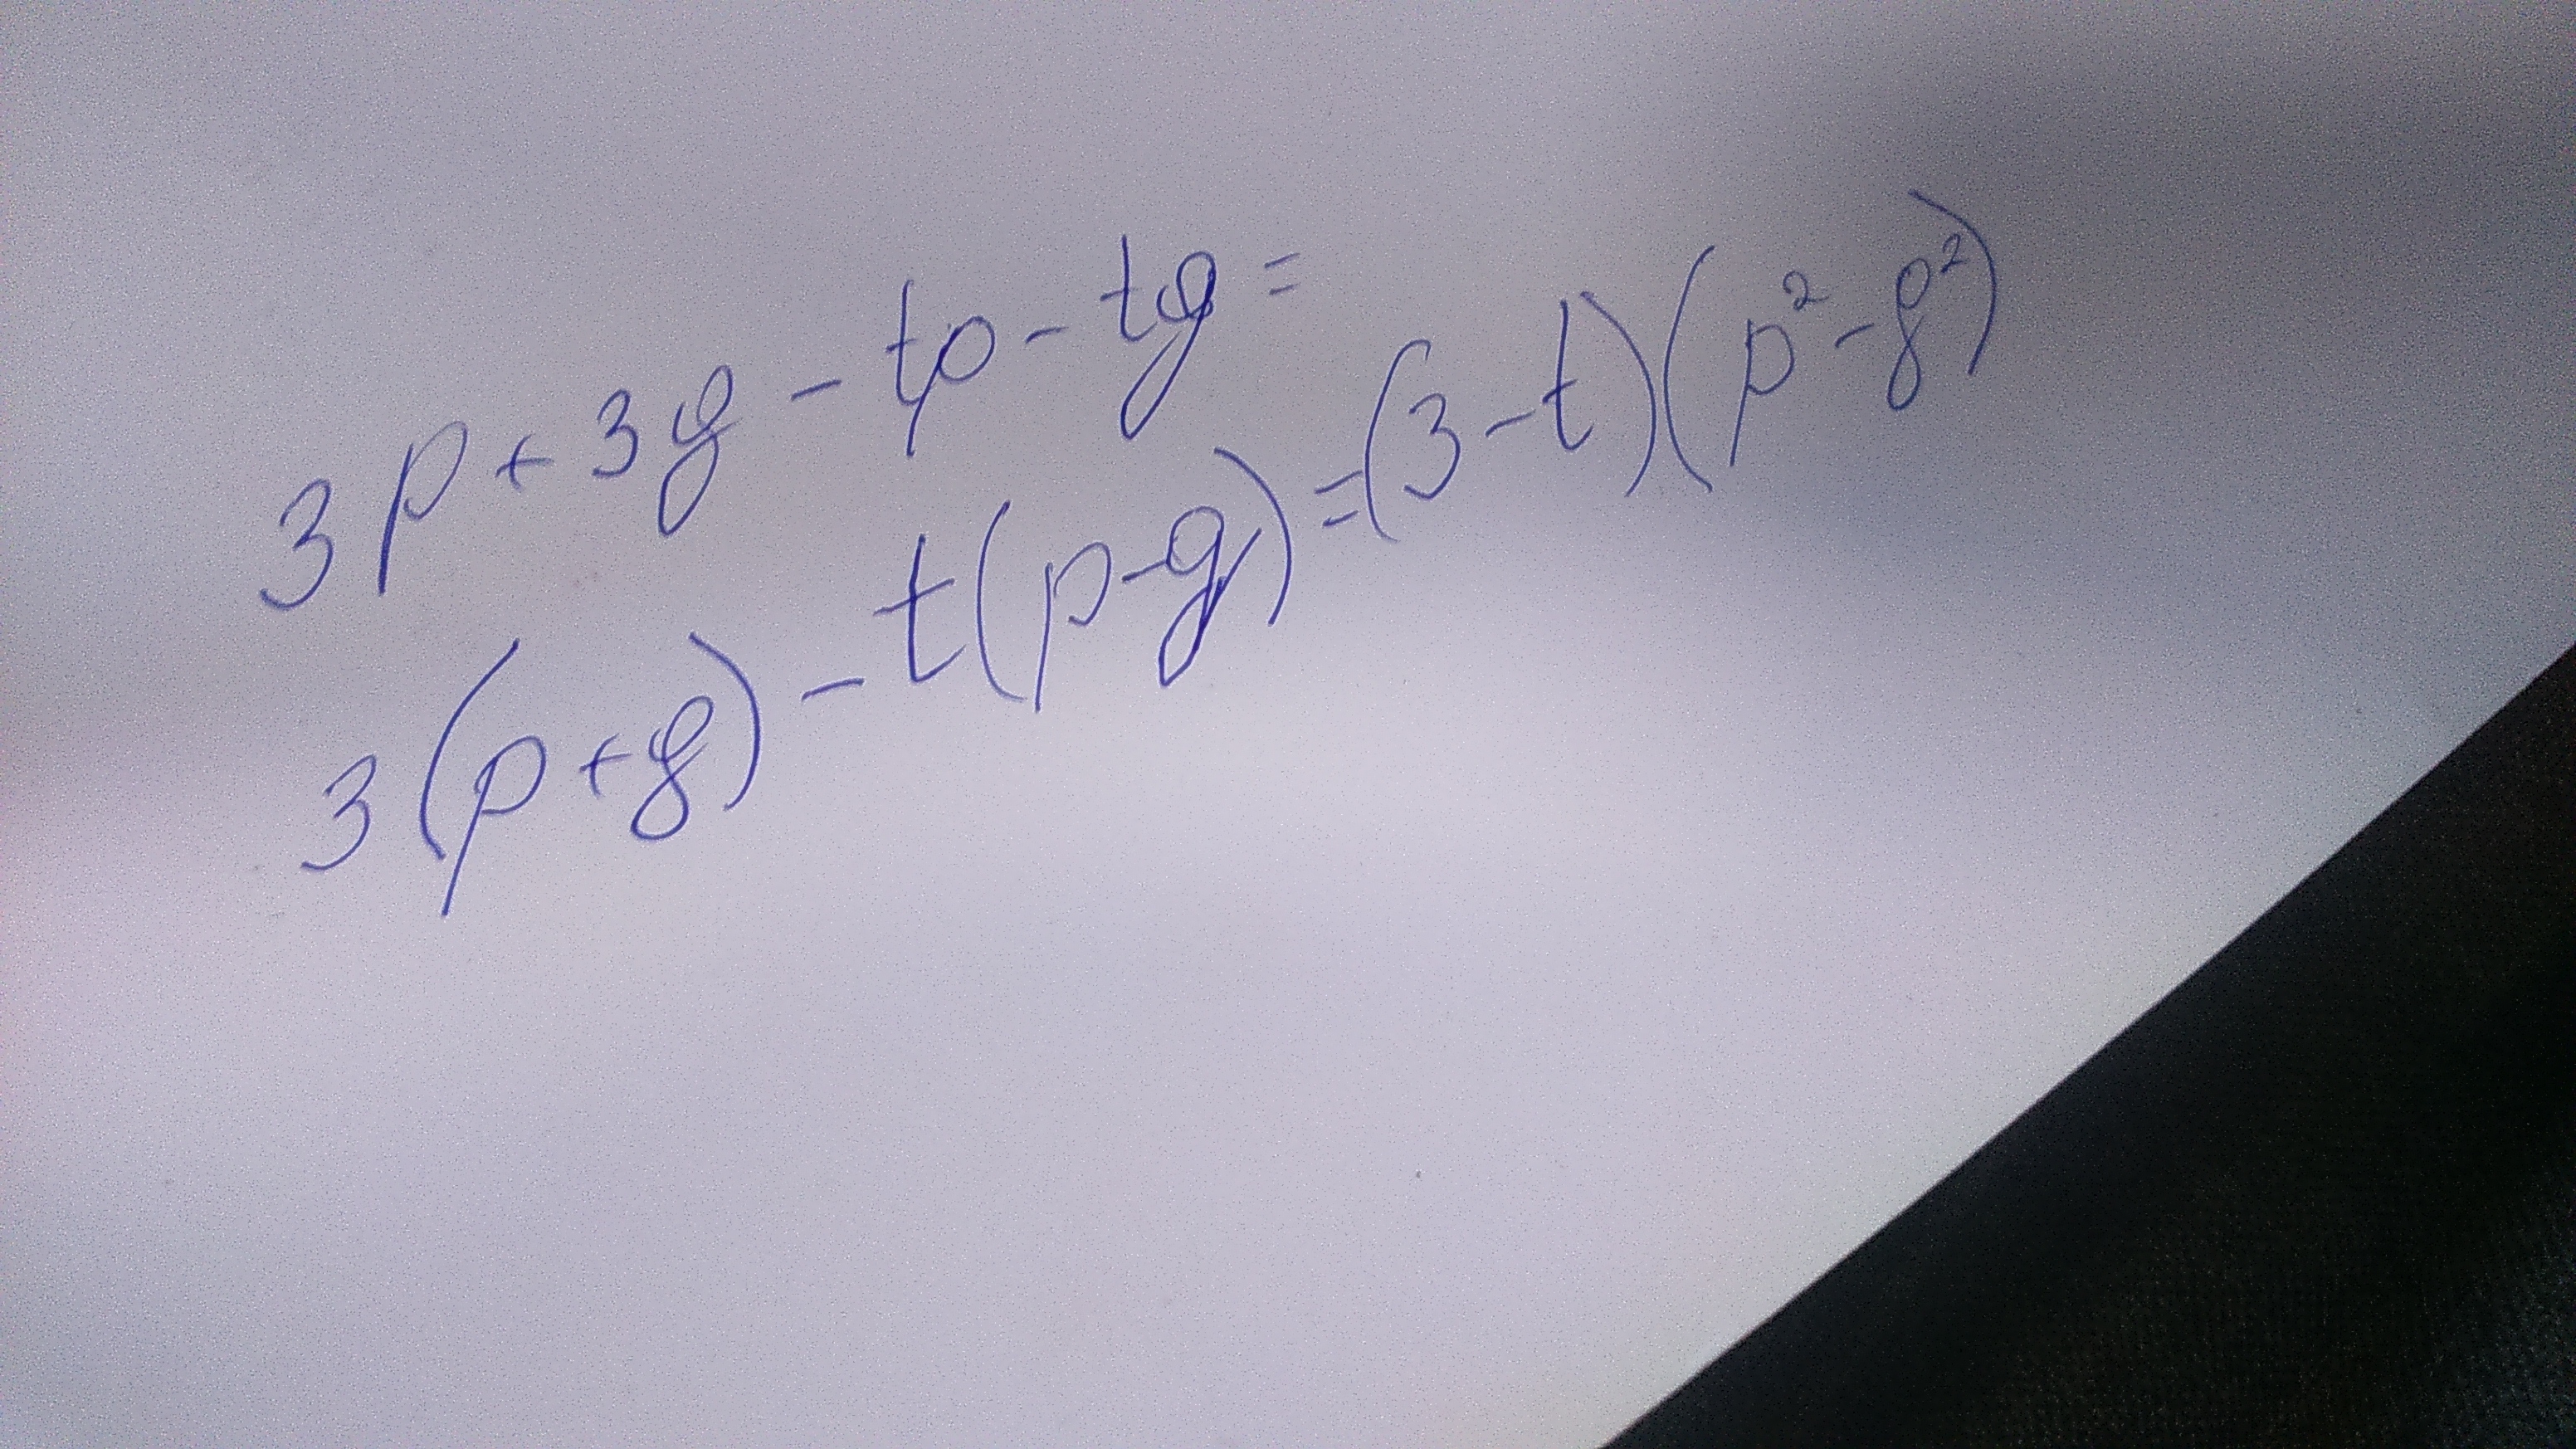 3p+3g-tp-tg=
3(p+g)-t(p-g)=(3-t)(p²-g²)